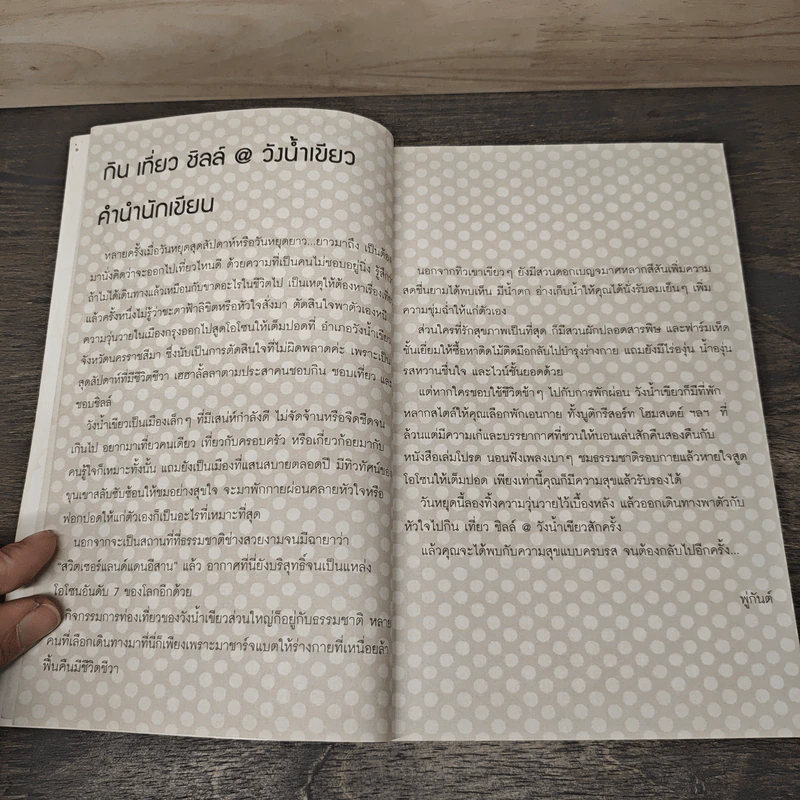 กิน เที่ยว ชิลล์ @ วังน้ำเขียว
คำนำนักเขียน
หลายครั้งเมื่อวันหยุดสุดสัปดาห์หรือวันหยุดยาว...ยาวมาถึง เป็นต้อง
มานั่งคิดว่าจะออกไปเที่ยวไหนดี ด้วยความที่เป็นคนไม่ชอบอยู่นิ่ง
ถ้าไม่ได้เดินทางแล้วเหมือนกับขาดอะไรในชีวิตไป เป็นเหตุให้ต้องหาเรื่อง
แล้วครั้งหนึ่งไม่รู้ว่าชะตาฟ้าลิขิตหรือหัวใจสั่งมา ตัดสินใจพาตัวเองหนี
ความวุ่นวายในเมืองกรุงออกไปสูดโอโซนให้เต็มปอดที่ อำเภอวังน้ำเขียว
จังหวัดนครราชสีมา ซึ่งนับเป็นการตัดสินใจที่ไม่ผิดพลาดค่ะ เพราะเป็น
สุดสัปดาห์ที่มีชีวิตชีวา เฮฮาลั้ลลาตามประสาคนชอบกิน ชอบเที่ยว และ
ชอบชิลล์
วังน้ำเขียวเป็นเมืองเล็กๆ ที่มีเสน่ห์กำลังดี ไม่จัดจ้านหรือจืดชืดจน
เกินไป อยากมาเที่ยวคนเดียว เที่ยวกับครอบครัว หรือเกี่ยวก้อยมากับ
คนรู้ใจก็เหมาะทั้งนั้น แถมยังเป็นเมืองที่แสนสบายตลอดปี มีทิวทัศน์ของ
ขุนเขาสลับซับซ้อนให้ชมอย่างสุขใจ จะมาพักกายผ่อนคลายหัวใจหรือ
ฟอกปอดให้แก่ตัวเองก็เป็นอะไรที่เหมาะที่สุด
นอกจากจะเป็นสถานที่ที่ธรรมชาติช่างสวยงามจนมีฉายาว่า
"สวิตเซอร์แลนด์แดนอีสาน" แล้ว อากาศที่นี่ยังบริสุทธิ์จนเป็นแหล่ง
โอโซนอันดับ 7 ของโลกอีกด้วย
กิจกรรมการท่องเที่ยวของวังน้ำเขียวส่วนใหญ่ก็อยู่กับธรรมชาติ หลาย
คนที่เลือกเดินทางมาที่นี่ก็เพียงเพราะมาชาร์จแบตให้ร่างกายที่เหนื่อยล้า
ฟื้นคืนมีชีวิตชีวา
นอกจากทิวเขาเขียวๆ ยังมีสวนดอกเบญจมาศหลากสีสันเพิ่มความ
สดชื่นยามได้พบเห็น มีน้ำตก อ่างเก็บน้ำให้คุณได้นั่งรับลมเย็นๆ เพิ่ม
ความชุ่มฉ่ำให้แก่ตัวเอง
ส่วนใครที่รักสุขภาพเป็นที่สุด ก็มีสวนผักปลอดสารพิษ และฟาร์มเห็ด
ชั้นเยี่ยมให้ซื้อหาติดไม้ติดมือกลับไปบำรุงร่างกาย แถมยังมีไร่องุ่น น้ำองุ่น
รสหวานชื่นใจ และไวน์ชั้นยอดด้วย
แต่หากใครชอบใช้ชีวิตช้าๆ ไปกับการพักผ่อน วังน้ำเขียวก็มีที่พัก
หลากสไตล์ให้คุณเลือกพักเอนกาย ทั้งบูติกรีสอร์ท โฮมสเตย์ ฯลฯ ที่
ล้วนแต่มีความเก๋และบรรยากาศที่ชวนให้นอนเล่นสักคืนสองคืนกับ
หนังสือเล่มโปรด นอนฟังเพลงเบาๆ ชมธรรมชาติรอบกายแล้วหายใจสูด
โอโซนให้เต็มปอด เพียงเท่านี้คุณก็มีความสุขแล้วรับรองได้
วันหยุดนี้ลองทิ้งความวุ่นวายไว้เบื้องหลัง แล้วออกเดินทางพาตัวกับ
หัวใจไปกิน เที่ยว ชิลล์ @ วังน้ำเขียวสักครั้ง
แล้วคุณจะได้พบกับความสุขแบบครบรส จนต้องกลับไปอีกครั้ง...
พู่กันต์